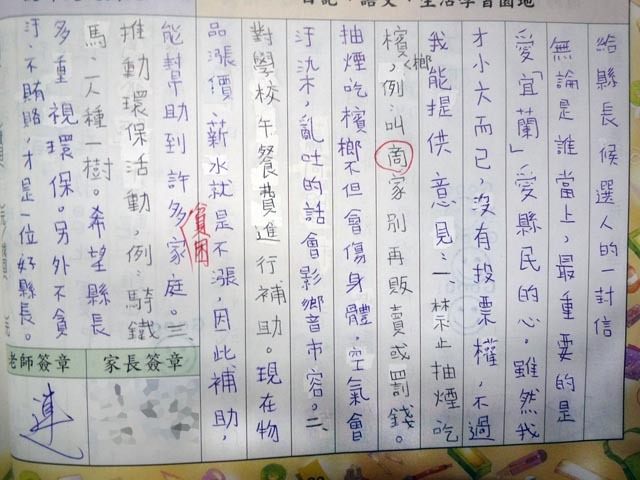 日記、語文、生活學習園地
給縣長候選人的一封信
無論是誰當上，最重要的是
愛「宜蘭」愛縣民的心。雖然我
才小六而已，沒有投票權，不過
我能提供意見：一、禁止抽煙吃
檳榔，例：叫商家別再販賣或罰錢。
抽煙吃檳榔不但會傷身體，空氣會
汙染，亂吐的話會影響市容。二、
對學校午餐費進行補助。現在物
品漲價，薪水就是不漲，因此補助，
能幫助到許多貧困家庭。三、
推動環保活動，例：騎鐵
馬、一人種一樹。希望縣長
多重視環保。另外不貪
汙、不賄賂，才是一位好縣長。
家長簽章
老師簽章
連